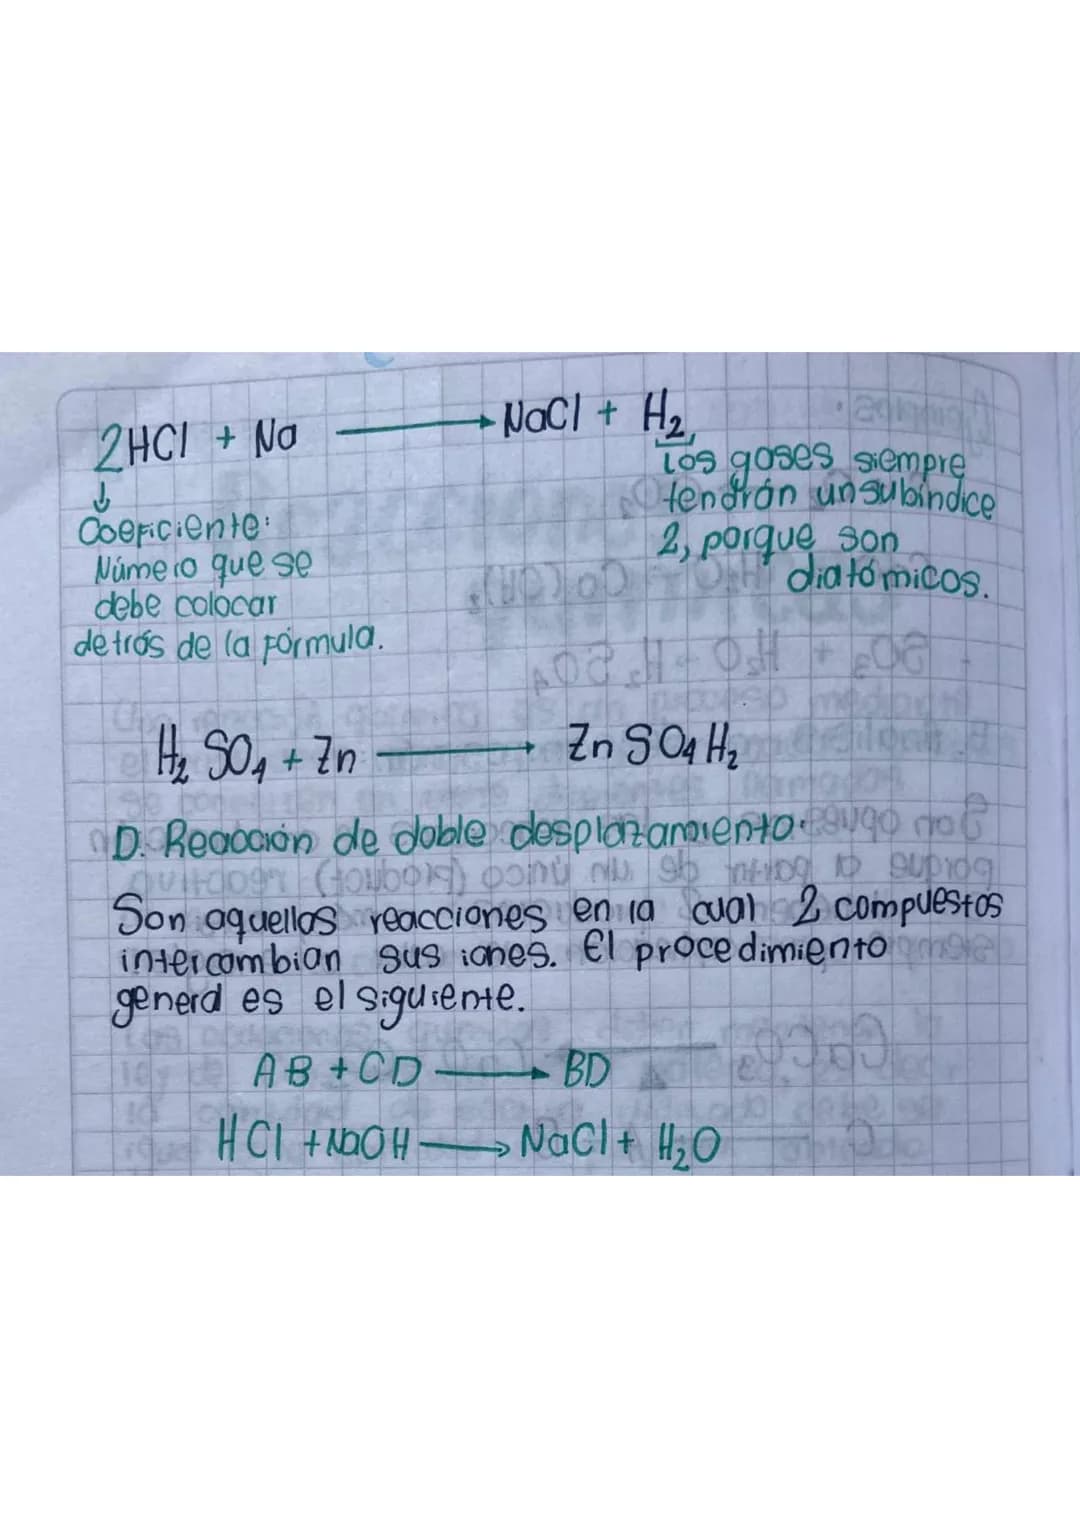 2HCl + Na → NaCl + H₂
↓
Coeficiente:
Número que se
debe colocar
detrás de la fórmula.
Los gases siempre
tendrán un subíndice
2, porque son
diatómicos.
H₂ SO₄ + Zn → Zn SO₄ H₂
D. Reacción de doble desplazamiento.
Son aquellas reacciones en la cual 2 compuestos
intercambian sus iones. El procedimiento
general es el siguiente.
AB + CD → BD
HCl + NaOH → NaCl + H₂O